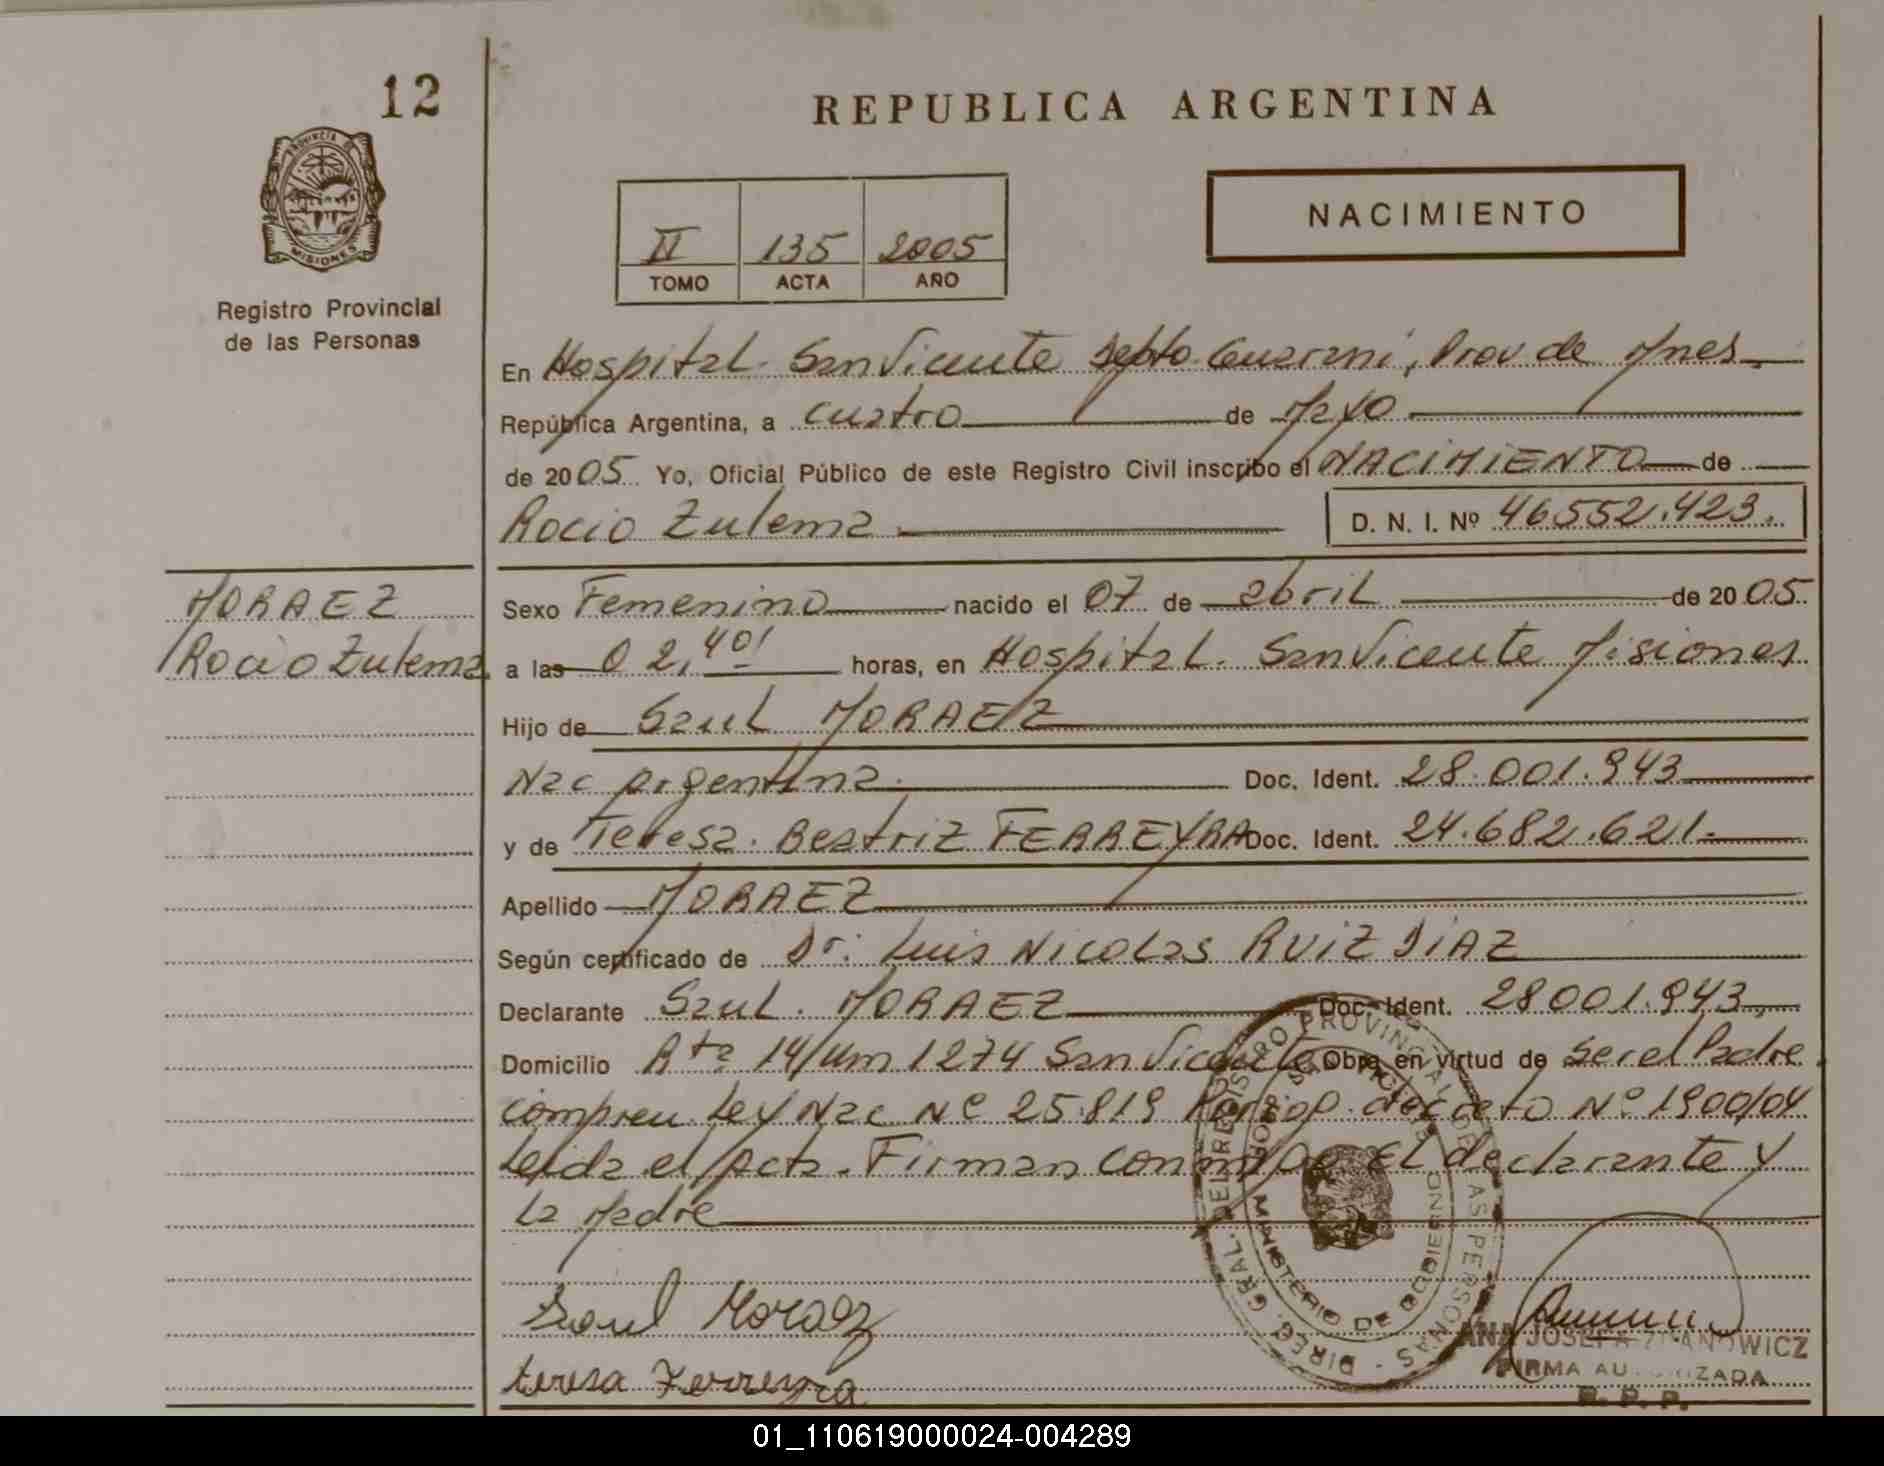 12
REPUBLICA ARGENTINA
PROVINCIA DE
MISIONES
Registro Provincial
de las Personas
NACIMIENTO
II 135 2005
TOMO ACTA AÑO
En Hospital. San Vicente Depto. Guarani, Prov de Mnes
República Argentina, a cuatro de Mayo
de 2005 Yo, Oficial Público de este Registro Civil inscribo el NACIMIENTO de
Rocio Zulema D. N. I. Nº 46552.423.
MORAEZ
Rocio Zulema
Sexo Femenino nacido el 07 de abril de 2005.
a las 02,40' horas, en Hospital. San Vicente Misiones.
Hijo de Saul MORAEZ
Nac Argentina. Doc. Ident. 28.001.943
y de Teresa. Beatriz FERREYRA Doc. Ident. 24.682.621.
Apellido MORAEZ
Según certificado de Dr. Luis Nicolas RUIZ DIAZ
Declarante Saul. MORAEZ Doc. Ident. 28001.943
Domicilio Rta 14/Km 1274 San Vicente Obra en virtud de ser el Padre.
Ley Nac Nº 25.819 decreto Nº 1900/04
Leida el Acta. Firman conmigo El declarante y
la Madre
Saul Moraez
teresa Ferreyra
DIREC. GRAL. DEL REGISTRO PROVINCIAL DE LAS PERSONAS
MINISTERIO DE GOBIERNO
ANA JOSEFA
FIRMA AUTORIZADA
R. P. P.
01_110619000024-004289